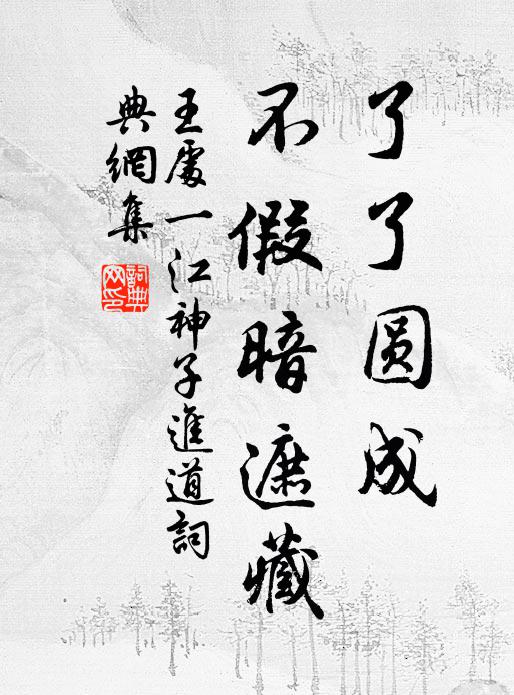 了了圆成
不假暗遮藏
王處一江神子進道詞
典網集
詞典网印